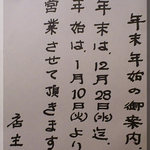 年末年始の御案内、
年末は、12月28日㈬迄、
年始は、1月10日㈫より
営業させて頂きます
店主